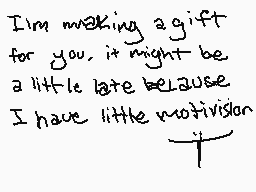 I'm making a gift
for you. it might be
a little late because
I have little motivision